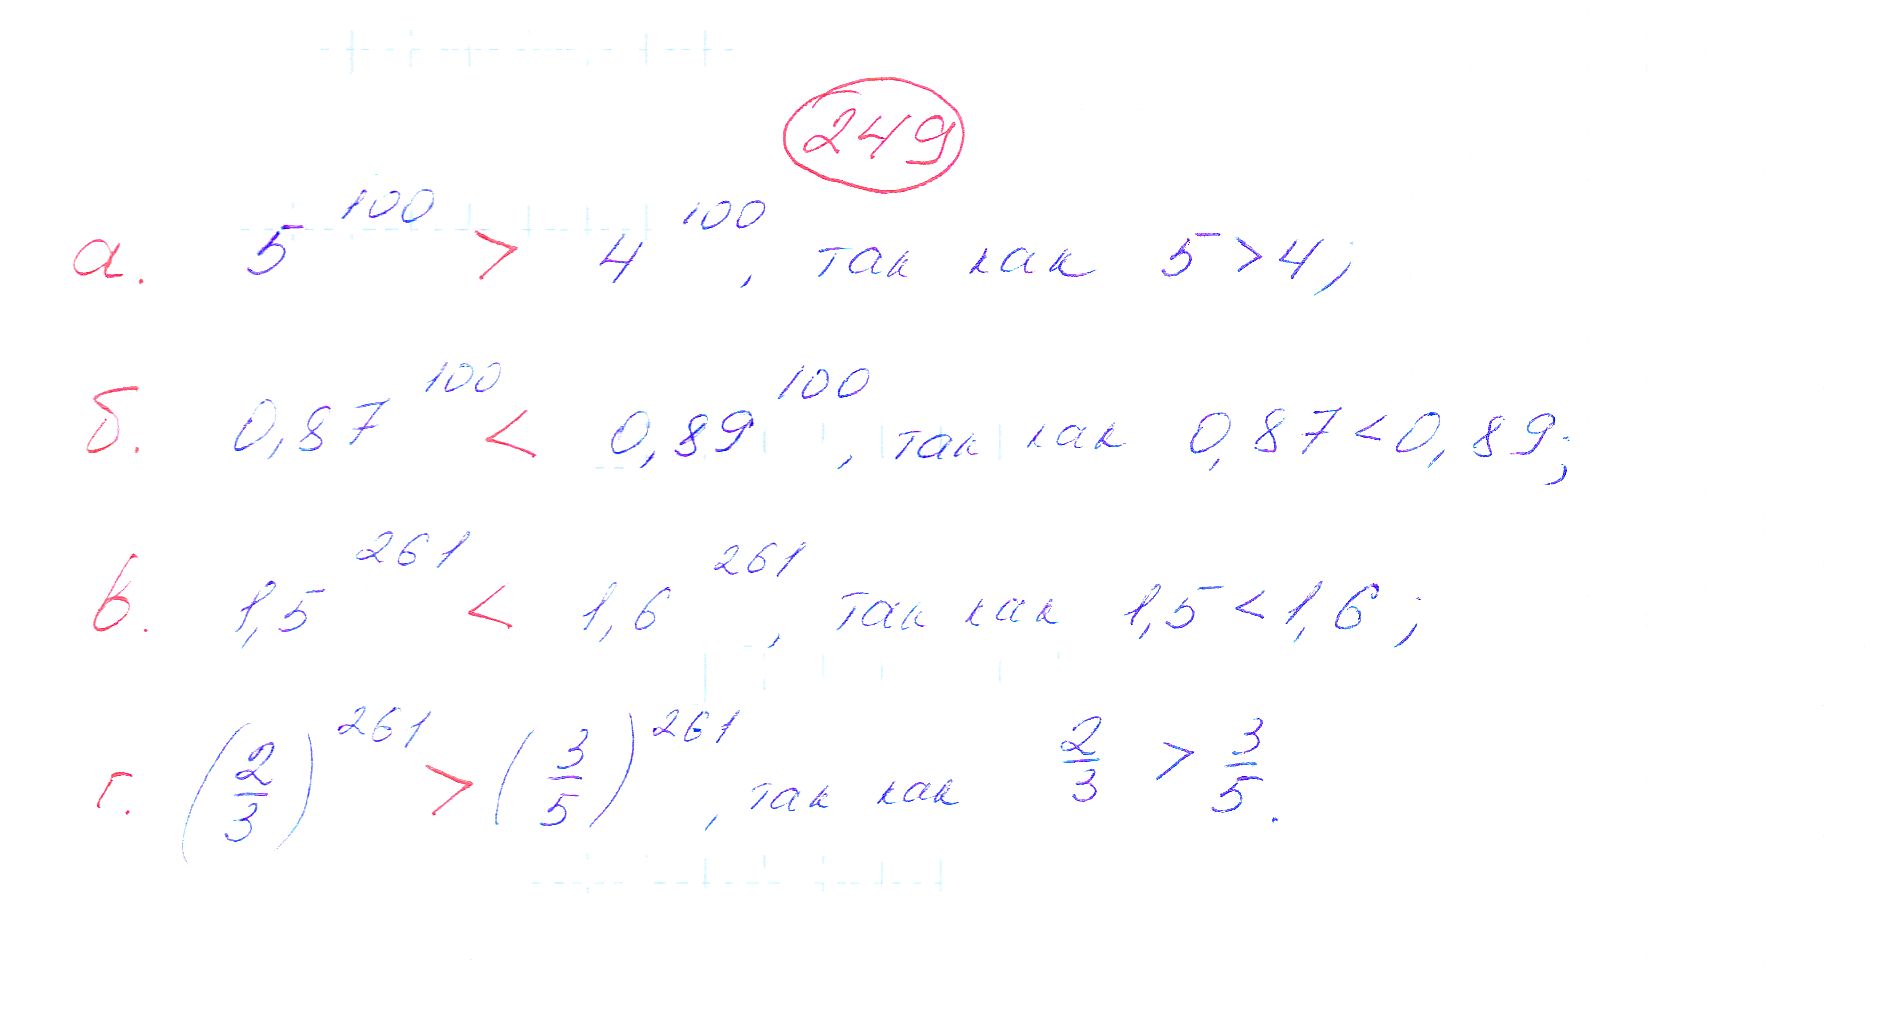 249
а. 5^100 > 4^100, так как 5 > 4;
б. 0,87^100 < 0,89^100, так как 0,87 < 0,89;
в. 1,5^261 < 1,6^261, так как 1,5 < 1,6;
г. (2/3)^261 > (3/5)^261, так как 2/3 > 3/5.